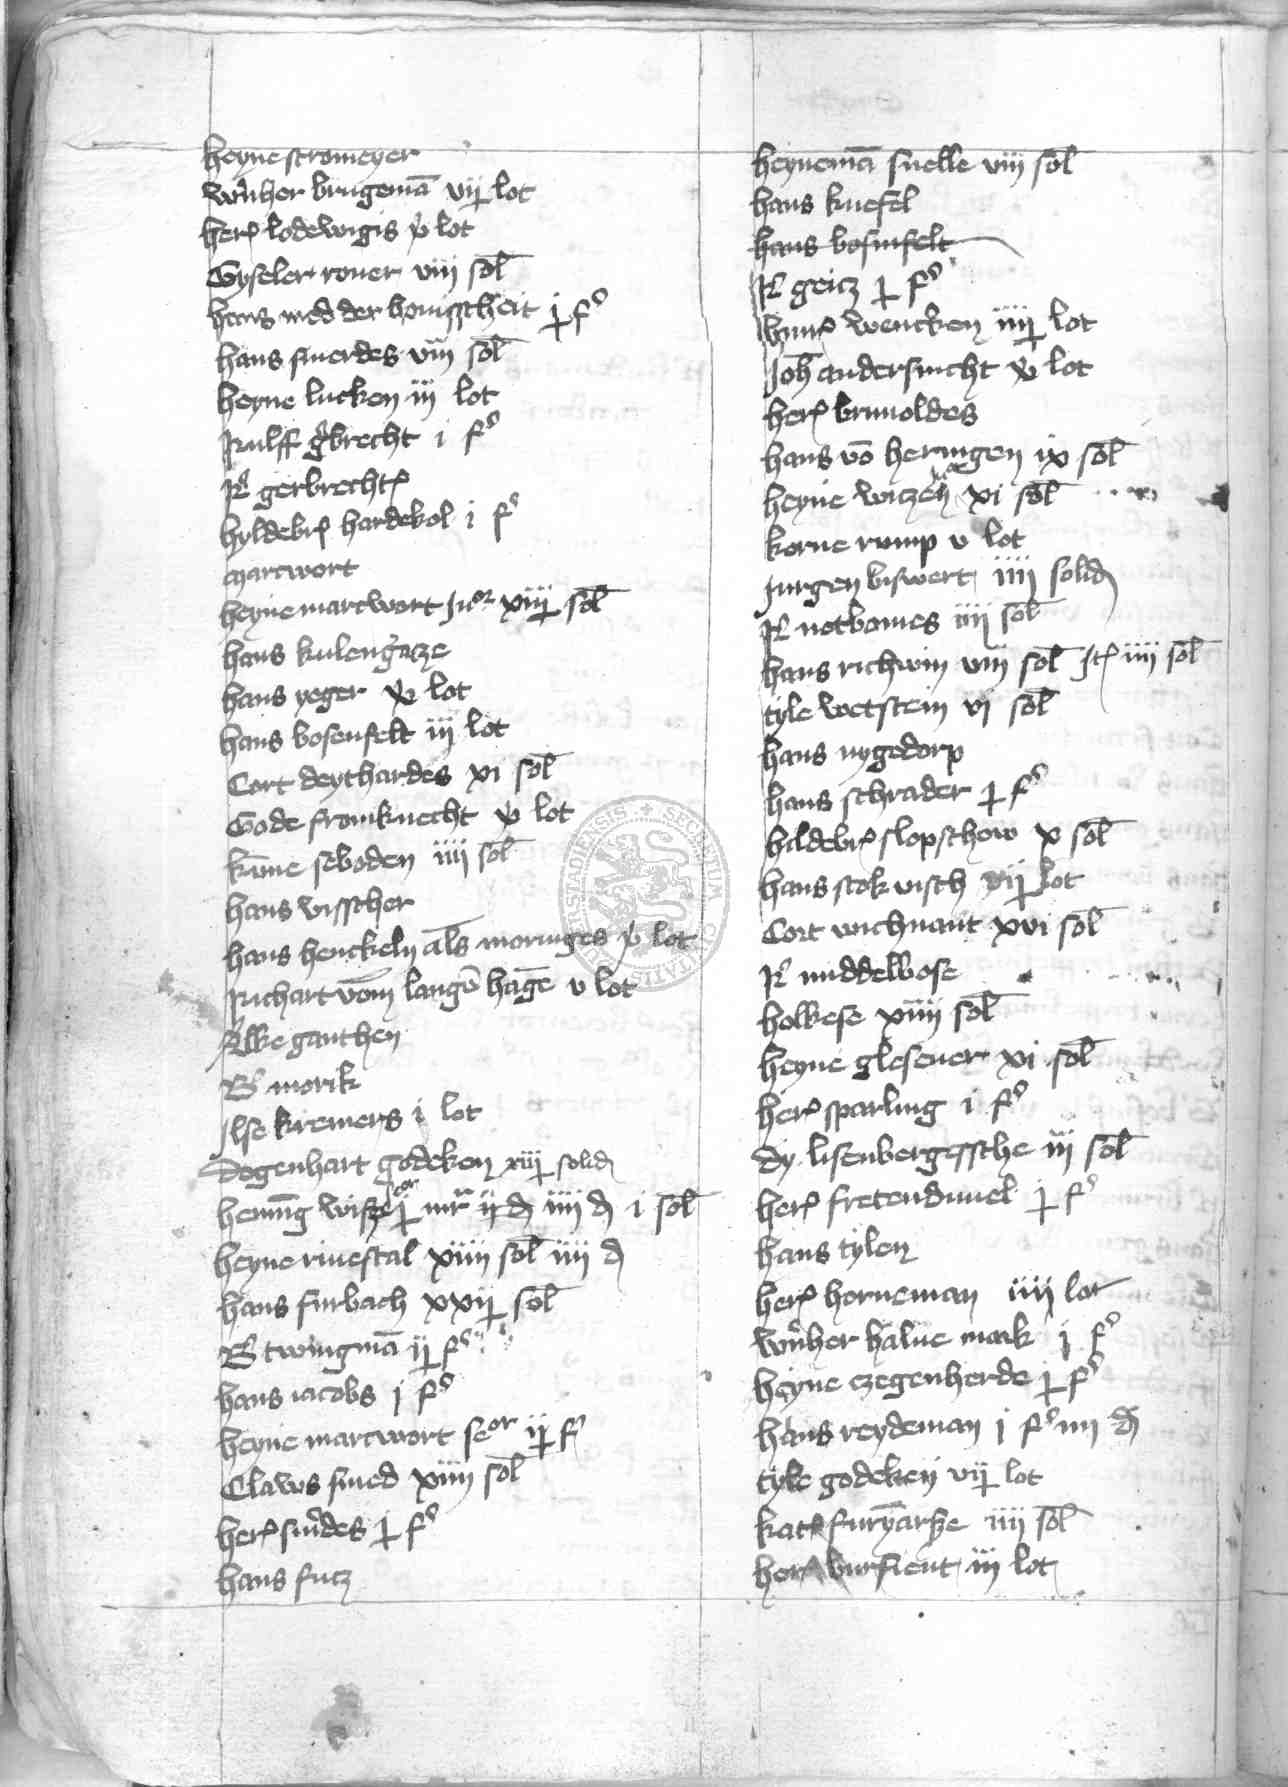 heyne stromeyer
wũher brugemā vij lot
herꝭ lodewigis v lot
Gyseler rouer viij sol̄
hans med der bonisscheit j f
hans swerdes viij sol̄
heyne lucken iij lot
Rulff gebrecht i f
R gerbrechtꝭ
hyldebrꝭ hardekol i f
marcwort
heyne marcwort Juor xiiij sol̄
hans kulengatze
hans yeger v lot
hans bosenfelt iij lot
Cort deythardes xi sol̄
Gode fronknecht v lot
kūne seboden iiij sol̄
hans visscher
hans henckeln als moringes v lot
Richart vom langē hagē v lot
ganthen
B morik
Ilse kremers i lot
Degenhart godeken xiij solid
hennīg mr ij d iiij d i sol̄
heyne rinestal xiiij sol̄ iiij d
hans furbach xxij sol̄
B twingmā ij f
hans iacobs j f
heyne marcwort seor ij f
Claws smed xiiij sol̄
herꝭ sw̃des j f
hans futz
heynemā snelle viij sol̄
hans knefel
hans bosinfelt
R geitz j f
wencken iiij lot
Joh andersnicht v lot
herꝭ brunoldes
hans vō heringen ix sol̄
heyne witzen xi sol̄
korne rump v lot
Jurgen biswert iiij solid
R notbomes iiij sol̄
hans richwin viij sol̄ Jtꝭ iiij sol̄
tyle wetstein vj sol̄
hans nygedorp
hans schrader j f
hildebrꝭ slopschow x sol̄
hans stokvisch vij lot
Cort wichnant xvi sol̄
R middelhose
holwese xiiij sol̄
heyne glesener xi sol̄
herꝭ sparling i f
dy lisenbergessche iij sol̄
herꝭ fretenduuel j f
hans tylen
herꝭ horneman iiij lot
wũher halue mark j f
heyne czegenherde j f
hans reydeman j f iiij d
tyle godeken vij lot
katꝭ iiij sol̄
burfient iij lot
SECRETUM CIVITATIS